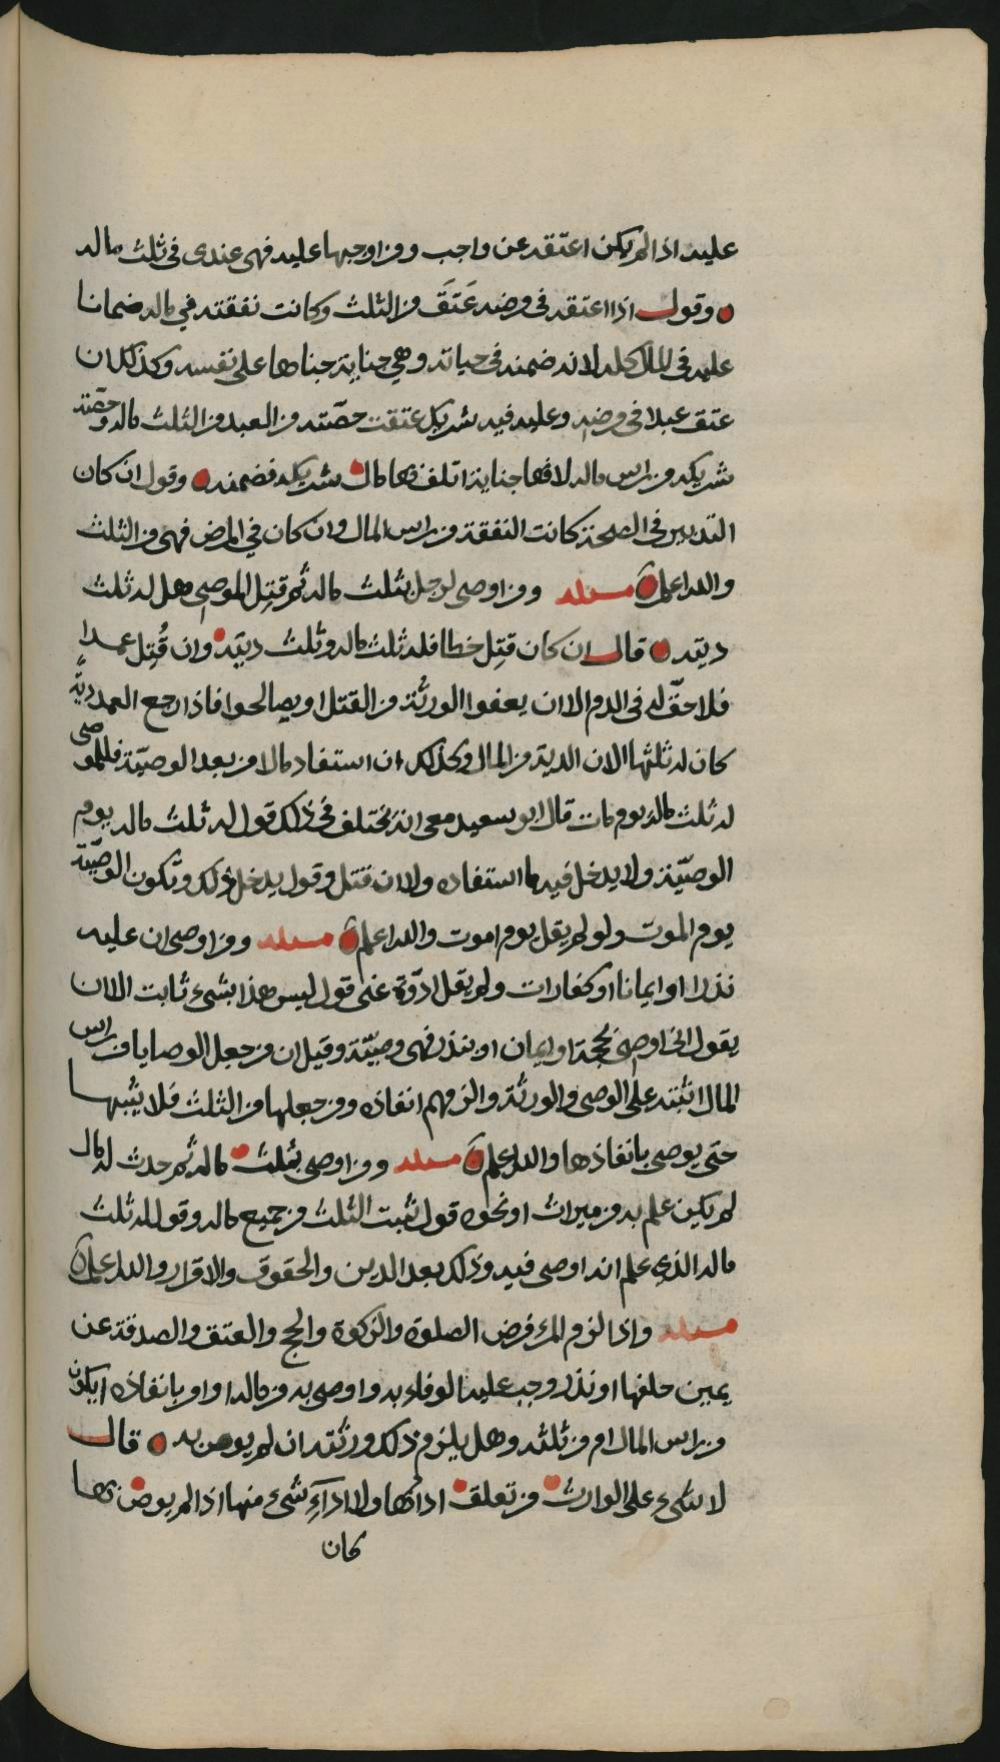 عليه اذا لم يكن اعتقه عن واجب ومن اوجبها عليه فهي عندي في ثلث ماله
وقول اذا اعتقه في مرضه عَتَقَ من الثلث وكانت نفقته في ماله ضمانا
عليه في المال كله لانه ضمنه في حياته وهي جناية جناها على نفسه وكذلك ان
عتق عبدا في مرضه وعليه فيه شريك عتقت حصّته من العبد من الثلث ماله وحصّته
شريكه من راس ماله لانها جناية اتلف فيها مال شريكه فضمنه وقول ان كان
التدبير في الصحة كانت النفقة من راس المال وان كان في المرض فهي من الثلث
والله اعلم مسئله ومن اوصى لرجل بثلث ماله ثم قتِل الموصي هل له ثلث
ديته قال ان كان قتِل خطا فله ثلث ماله وثلث ديته وان قُتِل عمدا
فلا حقّ له في الدم الا ان يعفوا الورثة من القتل او يصالحوا فاذا رجع العمد ديةً
كان له ثلثها الان الدية من المال وكذلك ان استفاد مالا من بعد الوصيّة فللموصى
له ثلث ماله يوم مات قال ابو سعيد معي انه يختلف في ذلك قول له ثلث ماله يوم
الوصيّة ولا يدخل فيه ما استفاده ولا ان قتل وقول يدخل ذلك وتكون الوصيّة
يوم الموت ولو لم يقل يوم اموت والله اعلم مسئله ومن اوصى ان عليه
نذرا او ايمانا او كفارات ولم يقل ادّوه عني قول ليس هذا بشيء ثابت الا ان
يقول اني اوصي بحجة او ايمان او بنذر فهي وصيّة وقيل ان من جعل الوصايا من راس
المال اثبته على الوصي والورثة والزمهم انفاذه ومن جعلها من الثلث فلا يثبتها
حتى يوصي بانفاذها والله اعلم مسئله ومن اوصى بثلث ماله ثم حدث له مال
لم يكن علم به من ميراث او نحوه قول تثبت الثلث من جميع ماله وقول له ثلث
ماله الذي علم انه اوصى فيه وذلك بعد الدين والحقوق والاقرار والله اعلم
مسئله واذا لزم المرء فرض الصلوة والزكوة والحج والعتق والصدقة عن
يمين حلفها او نذر وجب عليه الوفاء به واوصى به من ماله او امر بانفاذه ايكون
من راس المال ام من ثلثه وهل يلزم ذلك ورثته ان لم يوص به قال
لا شيء على الوارث من تعلق ادائها ولا اداءِ شيء منها اذا لم يوص بها
كان